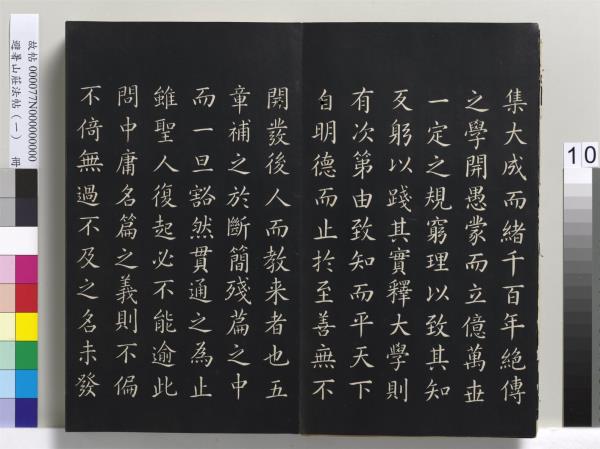 集大成而緒千百年絕傳
之學開愚蒙而立億萬世
一定之規窮理以致其知
反躬以踐其實釋大學則
有次第由致知而平天下
自明德而止於至善無不
開發後人而教来者也五
章補之於斷簡殘篇之中
而一旦豁然貫通之為止
雖聖人復起必不能逾此
問中庸名篇之義則不偏
不倚無過不及之名未發
故帖 000077N000000000
避暑山莊法帖（一） 冊
10